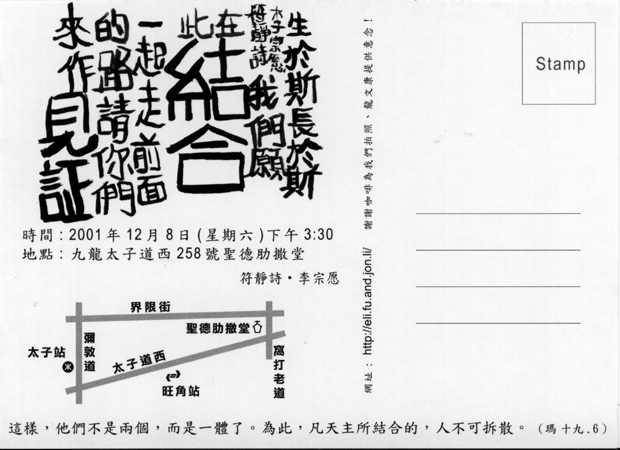 生於斯長於斯
木子宗愿
符靜詩
我們願
在此結合
一起走前面
的路請你們
來作見証
時間：2001年12月8日(星期六)下午3:30
地點：九龍太子道西258號聖德肋撒堂
符靜詩・李宗愿
界限街
聖德肋撒堂
彌敦道
太子站
太子道西
旺角站
窩打老道
這樣，他們不是兩個，而是一體了。為此，凡天主所結合的，人不可拆散。（瑪十九.6）
謝謝咖啡為我們拍照、龍文康提供意念！
網址：http://eli.fu.and.jon.li/
Stamp